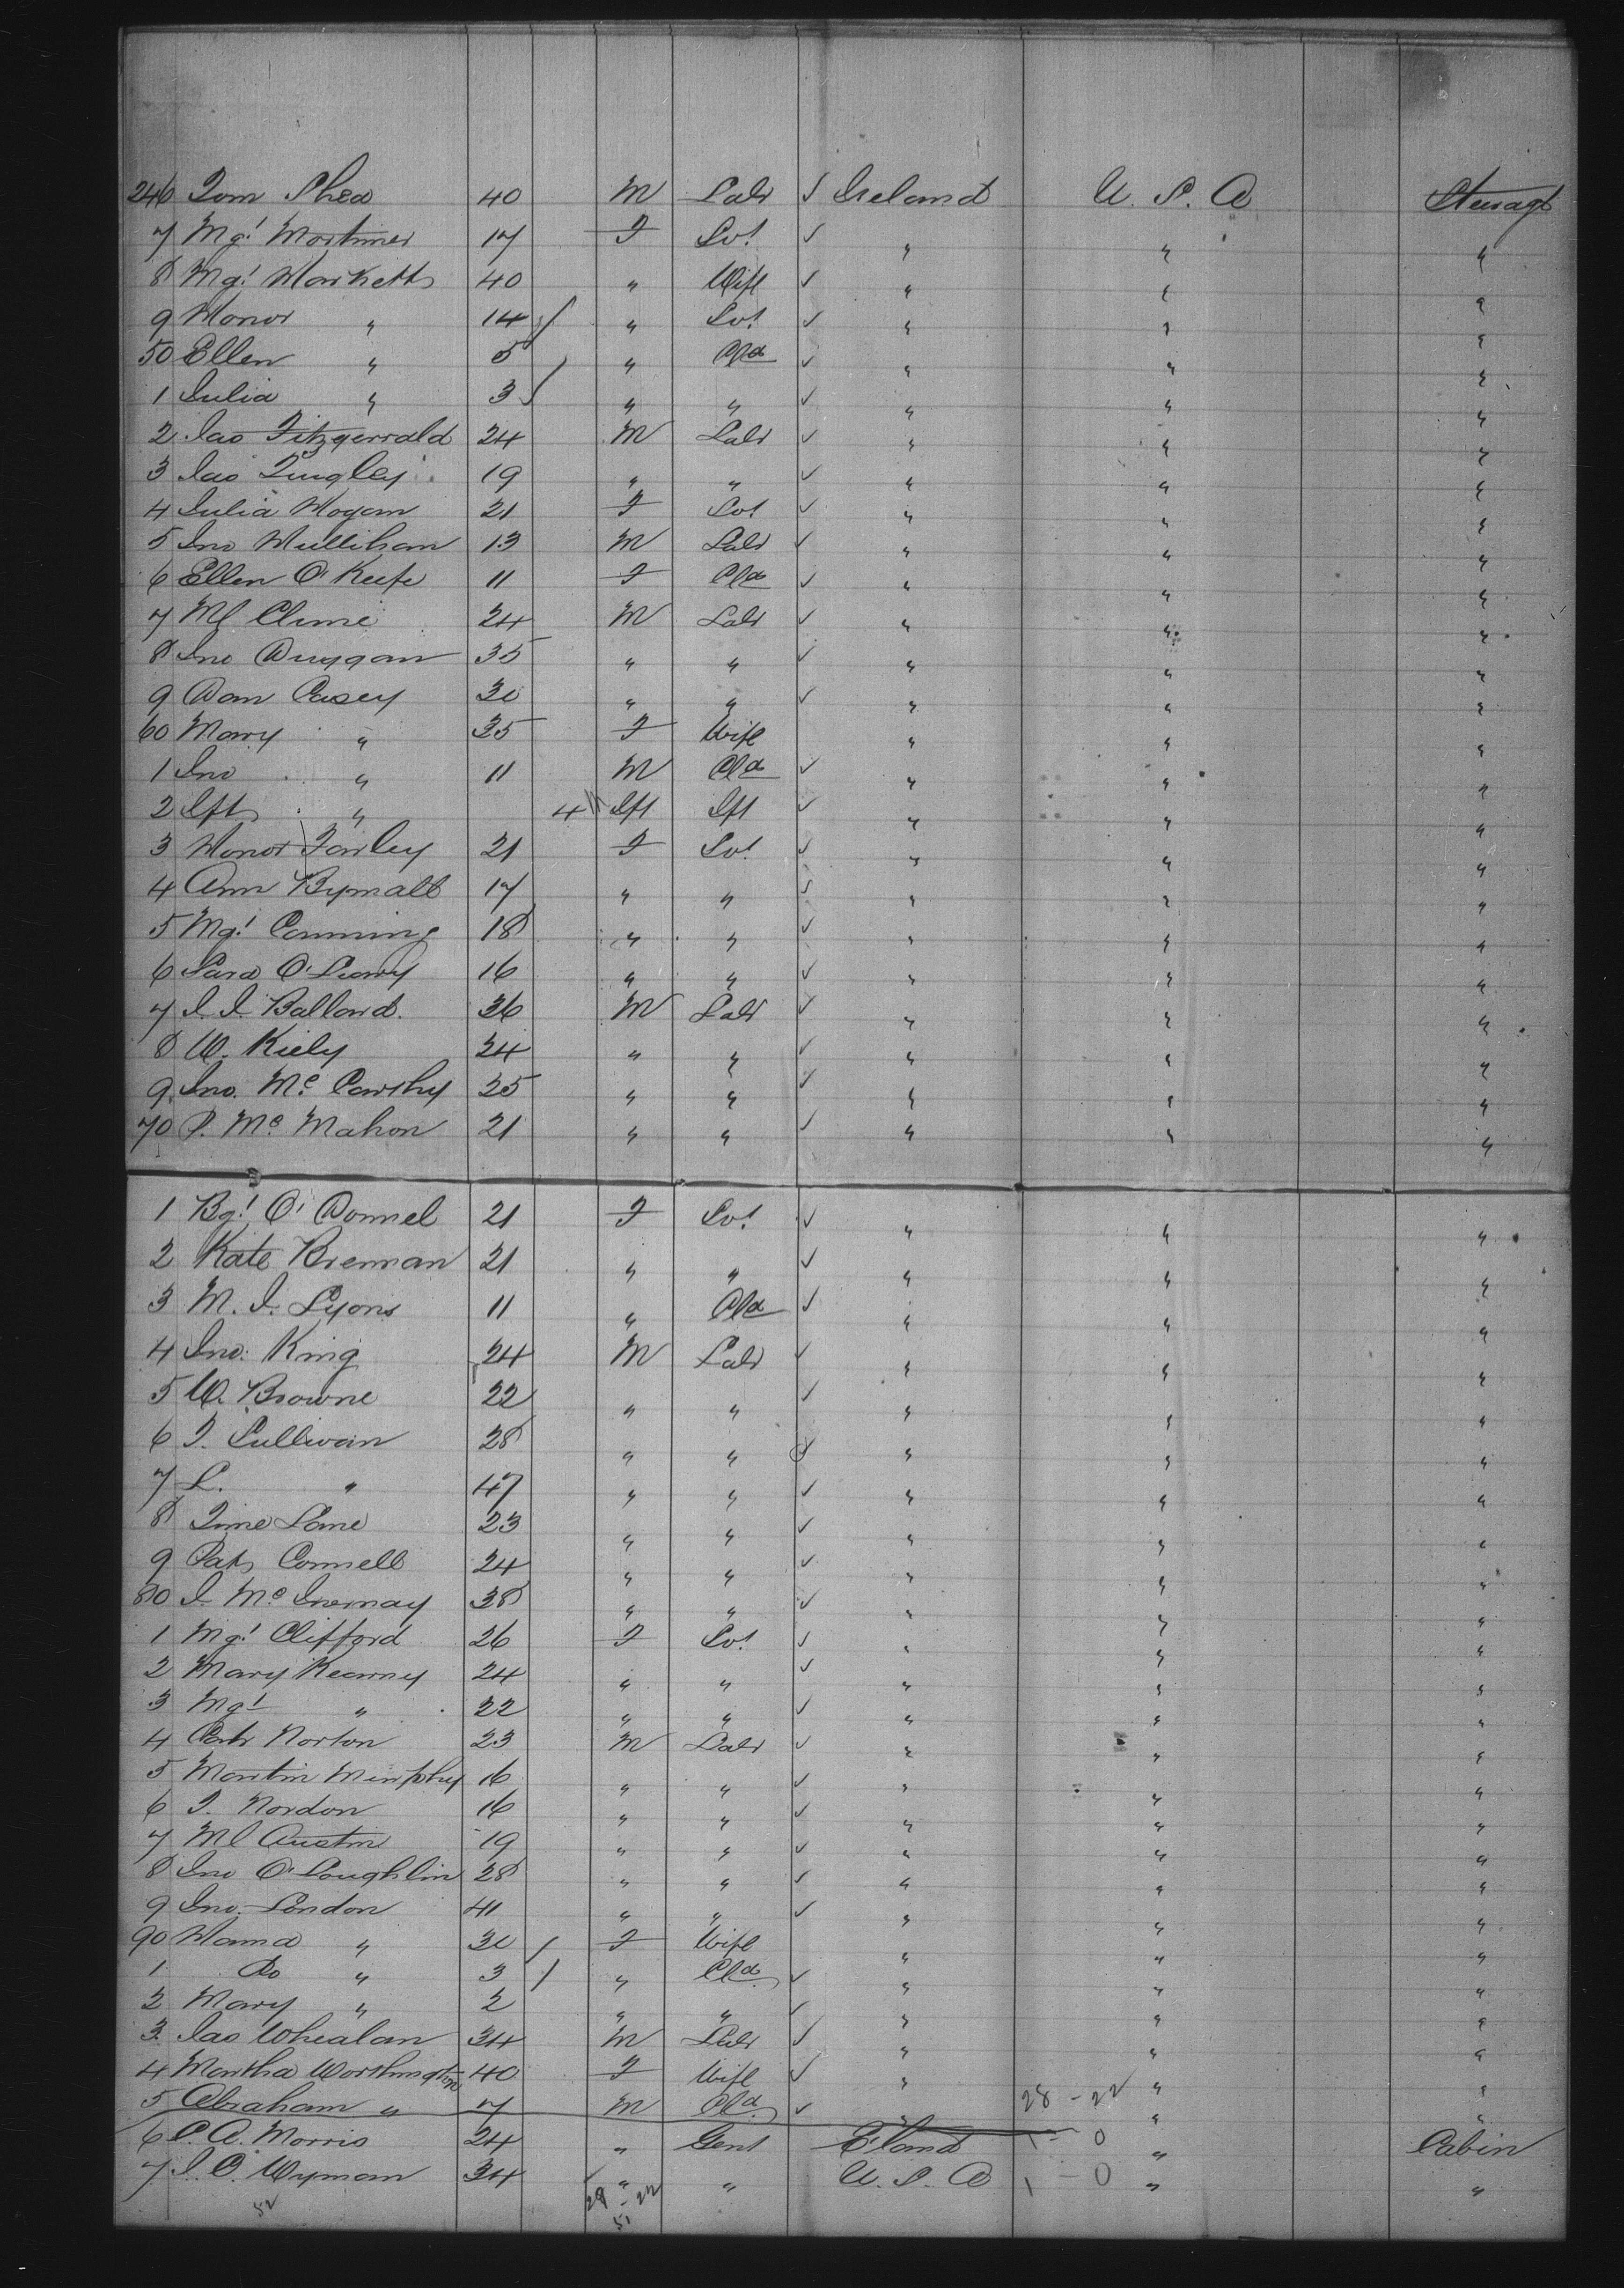 246 Tom Shea 40 M Labr ✓ Ireland U. S. A Steerage
7 Mgt Mortimer 17 F Svt ✓ " " "
8 Mgt Marketts 40 " Wife ✓ " " "
9 Honor " 14 " Svt ✓ " " "
50 Ellen " 5 " Cld ✓ " " "
1 Julia " 3 " " ✓ " " "
2 Jas Fitzgerrald 24 M Labr ✓ " " "
3 Jas Quigley 19 " " ✓ " " "
4 Julia Hogan 21 F Svt ✓ " " "
5 Jno Mullihan 13 M Labr ✓ " " "
6 Ellen O'Keefe 11 F Cld ✓ " " "
7 Ml Clune 24 M Labr ✓ " " "
8 Jno Duggan 35 " " ✓ " " "
9 Dan Casey 30 " " ✓ " " "
60 Mary " 35 F Wife " " "
1 Jno " 11 M Cld ✓ " " "
2 Ift " 4 Ift Ift ✓ " " "
3 Honor Farley 21 F Svt ✓ " " "
4 Ann 17 " " ✓ " " "
5 Mgt Canning 18 " " ✓ " " "
6 Sara O'Leary 16 " " ✓ " " "
7 J. J. Ballard. 36 M Labr ✓ " " "
8 W. Kiely 24 " " ✓ " " "
9 Jno. Mc Carthy 25 " " ✓ " " "
70 P. Mc Mahon 21 " " ✓ " " "
1 Bgt O'Donnel 21 F Svt ✓ " " "
2 Kate Brennan 21 " " ✓ " " "
3 M. J. Lyons 11 " Cld ✓ " " "
4 Jno: King 24 M Labr ✓ " " "
5 W. Browne 22 " " ✓ " " "
6 T. Sullivan 28 " " ✓ " " "
7 L. " 47 " " ✓ " " "
8 Time Lane 23 " " ✓ " " "
9 Pat Connell 24 " " ✓ " " "
80 J. Mc Inernay 38 " " ✓ " " "
1 Mgt Clifford 26 F Svt ✓ " " "
2 Mary Kearney 24 " " ✓ " " "
3 Mgt " 22 " " ✓ " " "
4 Patk Norton 23 M Labr ✓ " " "
5 Martin Murphy 16 " " ✓ " " "
6 T. Nordon 16 " " ✓ " " "
7 Ml Austin 19 " " ✓ " " "
8 Jno O'Loughlin 28 " " ✓ " " "
9 Jno. London 41 " " ✓ " " "
90 Hanna " 30 F Wife " " "
1 Do " 3 " Cld ✓ " " "
2 Mary " 2 " " ✓ " " "
3. Jas Whealan 34 M Labr ✓ " " "
4 Martha Worthington 40 F Wife ✓ " " "
5 Abraham " 7 M Cld ✓ " 28 - 22 " "
6 C. A. Morris 24 " Gent E'land 1 - 0 " Cabin
7 J. C. Wyman 34 " " U. S. A 1 - 0 " "
52 29 - 22
51